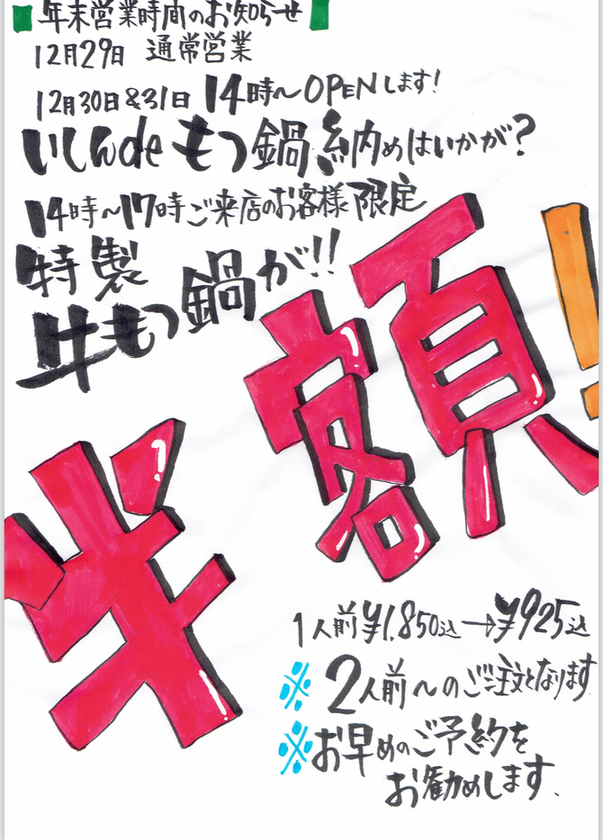 年末営業時間のお知らせ
12月29日 通常営業
12月30日&31日 14時〜OPENします!
いしんdeもつ鍋納めはいかが?
14時〜17時ご来店のお客様限定
特製
牛もつ鍋が!!
半額!
1人前¥1,850込→¥925込
※2人前〜のご注文となります
※お早めのご予約を
お勧めします.